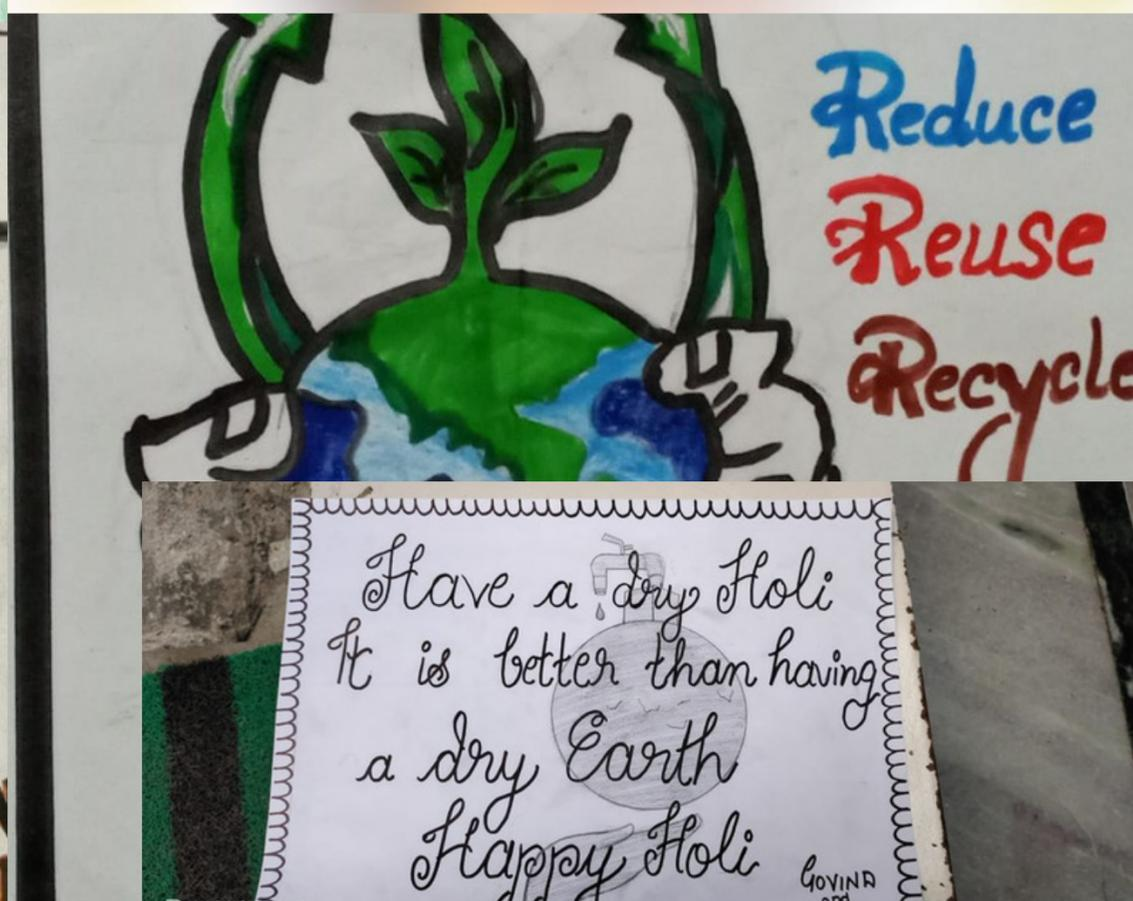 Reduce
Reuse
Recycle
Have a dry Holi
It is better than having
a dry Earth
Happy Holi
GOVIND
and